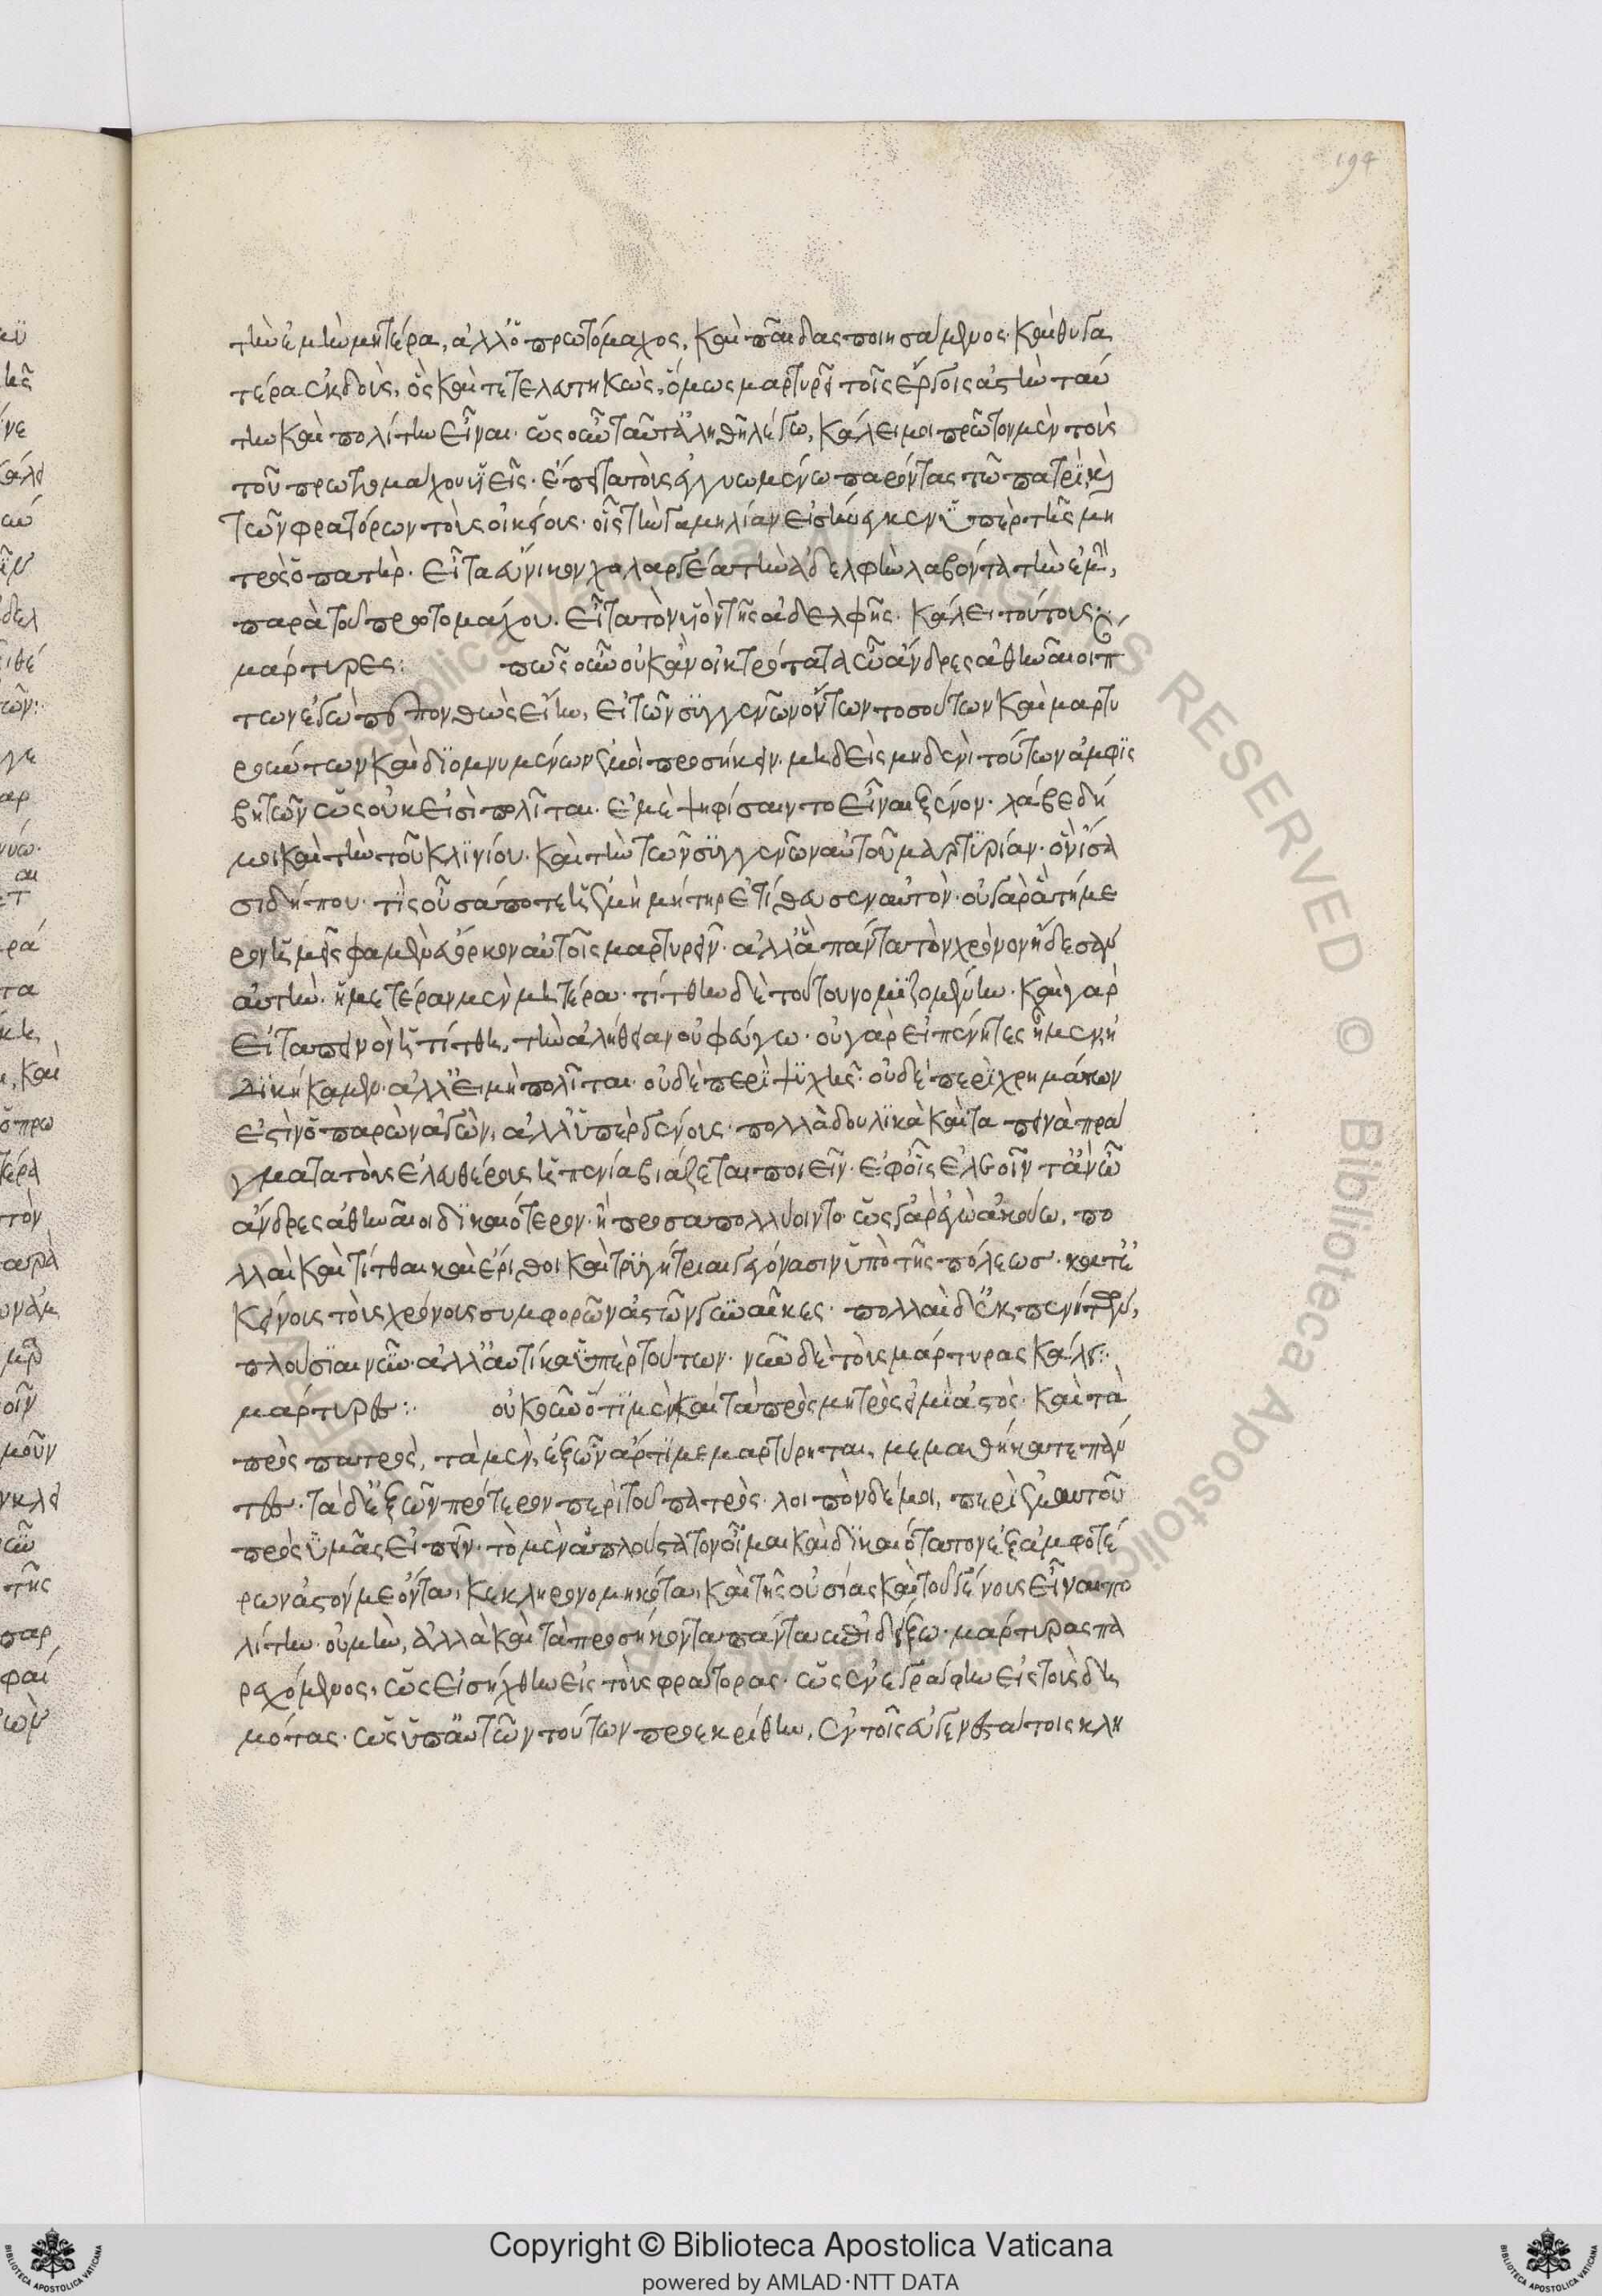 194
τὴν ἐμὴν μητέρα, ἀλλ' ὁ πρωτόμαχος, καὶ παῖδας ποιησάμενος· καὶ θυγα
τέρα ἐκδοὺς, ὃς καὶ τετελευτηκὼς, ὅμως μαρτυρεῖ τοῖς ἔργοις ἀστὴν ταύ
την καὶ πολίτην εἶναι· ὡς οὖν ταῦτ' ἀληθῆ λέγω, κάλει μοι πρῶτον μὲν τοὺς
τοῦ πρωτομάχου υἱεῖς· ἔπειτα τοὺς ἐγγυωμένω παρόντας τῶ πατρὶ, καὶ
τῶν φρατόρων τοὺς οἰκείους· οἷς τὴν γαμηλίαν εἰσήνεγκεν ὑπὲρ τῆς μη
τρὸς ὁ πατήρ· εἶτα εὔνικον χολαργέα τὴν ἀδελφὴν λαβόντα τὴν ἐμὴν,
παρὰ τοῦ πρωτομάχου· εἶτα τὸν υἱὸν τῆς ἀδελφῆς· κάλει τούτους:
μάρτυρες:
πῶς οὖν οὐκ ἂν οἰκτρότατα ὦ ἄνδρες ἀθηναῖοι π
των ἐγὼ πεπονθὼς εἴην, εἰ τῶν συγγενῶν ὄντων τοσούτων καὶ μαρτυ
ρούντων καὶ διομνυμένων ἐμοὶ προσήκειν· μηδεὶς μηδενὶ τούτων ἀμφις
βητῶν ὡς οὐκ εἰσὶ πολῖται· ἐμὲ ψηφίσαιντο εἶναι ξένον· λάβε δή
μοι καὶ τὴν τοῦ κλινίου· καὶ τὴν τῶν συγγενῶν αὐτοῦ μαρτυρίαν· ὃν ἴσα
σι δήπου· τίς οὖσά ποτε ἡ ἐμὴ μήτηρ ἐτίθευσεν αὐτὸν· οὐ γὰρ ἃ τήμε
ρον ἡμεῖς φαμὲν εὔορκον αὐτοῖς μαρτυρεῖν· ἀλλ' ἃ πάντα τὸν χρόνον ἤδεσαν
αὐτὴν· ἡμετέραν μὲν μητέρα· τίτθην δὲ τούτου νομιζομένην· καὶ γὰρ
εἰ ταπεινὸν ἡ τίτθη, τὴν ἀλήθειαν οὐ φεύγω· οὐ γὰρ εἰ πένητες ἦμεν, ἠ
δικήκαμεν· ἀλλ' εἰ μὴ πολῖται· οὐδὲ περὶ τύχης· οὐδὲ περὶ χρημάτων
ἐστὶν ὁ παρὼν ἀγὼν, ἀλλ' ὑπὲρ γένους· πολλὰ δουλικὰ καὶ ταπεινὰ πρά
γματα τοὺς ἐλευθέρους ἡ πενία βιάζεται ποιεῖν· ἐφ' οἷς ἐλεοῖντ' ἂν ὦ
ἄνδρες ἀθηναῖοι δικαιότερον· ἢ προσαπολλύοιντο· ὡς γὰρ ἐγὼ ἀκούω, πο
λλαὶ καὶ τίτθαι καὶ ἔριθοι καὶ τρυγήτριαι γεγόνασιν ὑπὸ τῆς πόλεως· κατ' ἐ
κείνους τοὺς χρόνους συμφορῶν ἀστῶν γυναῖκες· πολλαὶ δ' ἐκ πενήτων,
πλούσιαι νῦν· ἀλλ' αὐτίκα ὑπὲρ τούτων· νῦν δὲ τοὺς μάρτυρας κάλει:
μάρτυρες:
οὐκοῦν ὅτι μὲν καὶ τὰ πρὸς μητρὸς εἰμὶ ἀστὸς· καὶ τὰ
πρὸς πατρὸς, τὰ μὲν, ἐξ ὧν ἄρτι μεμαρτύρηται, μεμαθήκατε πάν
τες· τὰ δ' ἐξ ὧν πρότερον περὶ τοῦ πατρὸς· λοιπὸν δέ μοι, περὶ ἐμαυτοῦ
πρὸς ὑμᾶς εἰπεῖν· τὸ μὲν ἁπλούστατον οἶμαι καὶ δικαιότατον ἐξ ἀμφοτέ
ρων ἀστόν με ὄντα, κεκληρονομηκότα, καὶ τῆς οὐσίας καὶ τοῦ γένους εἶναι πο
λίτην· οὐ μὴν, ἀλλὰ καὶ τὰ προσήκοντα πάντα ἐπιδείξω· μάρτυρας πα
ρεχόμενος, ὡς εἰσήχθην εἰς τοὺς φράτορας· ὡς ἐνεγράφην εἰς τοὺς δη
μότας· ὡς ὑπ' αὐτῶν τούτων προεκρίθην, ἐν τοῖς εὐγενεστάτοις κλη
Copyright © Biblioteca Apostolica Vaticana
powered by AMLAD·NTT DATA